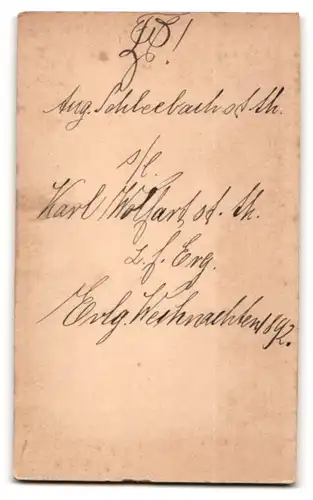 !
Aug. Schleebach st. th.
s/l.
Karl Wolfart st. th.
z. f. Erg.
Erlg. Weihnachten 1892.